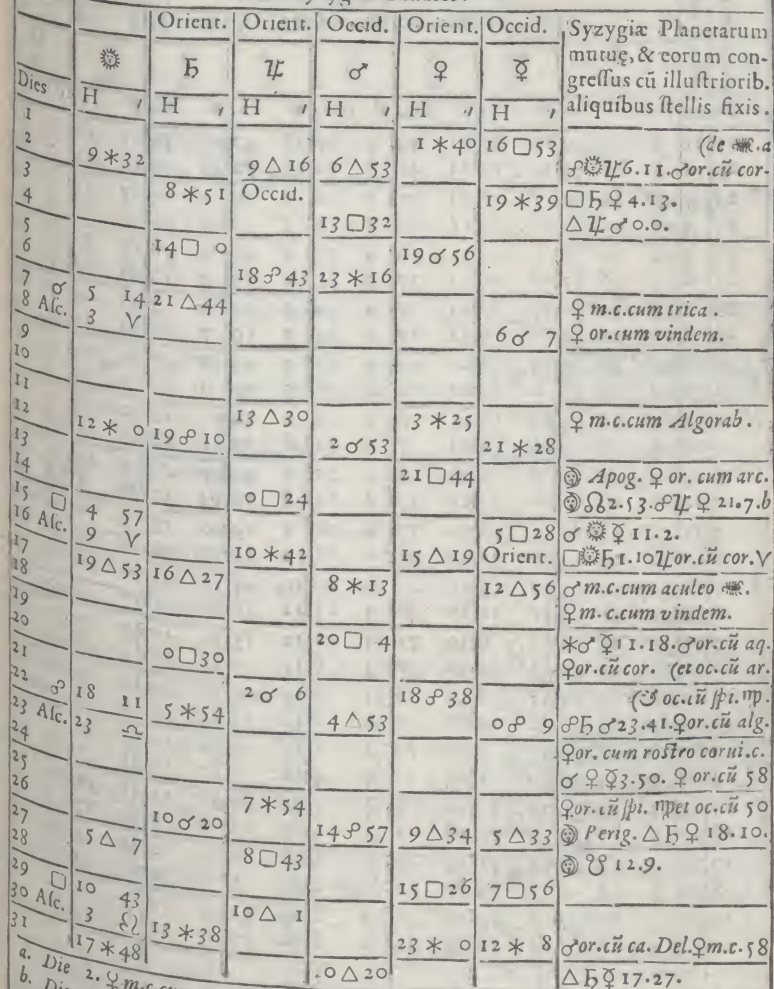 Orient. Orient. Occid. Orient. Occid. Syzygiæ Planetarum
☉ ♄ ♃ ♂ ♀ ☿ mutuę, & eorum con-
greſſus cũ illuſtriorib.
Dies H ′ H ′ H ′ H ′ H ′ H ′ aliquibus ſtellis fixis.
1
2 1 ✶ 40 16 □ 53 (de ♏. a
3 9 ✶ 32 9 △ 16 6 △ 53 ☍ ☉ ♃ 6.11. ♂ or. cũ cor-
4 8 ✶ 51 Occid. 19 ✶ 39 □ ♄ ♀ 4.13.
5 13 □ 32 △ ♃ ♂ 0.0.
6 14 □ 0 19 ☌ 56
7 ☌ 5 14 18 ☍ 43 23 ✶ 16
8 Aſc. 3 ♈ 21 △ 44 ♀ m.c. cum trica.
9 6 ☌ 7 ♀ or. cum vindem.
10
11
12 13 △ 30 3 ✶ 25 ♀ m.c. cum Algorab.
13 12 ✶ 0 19 ☍ 10 2 ☌ 53 21 ✶ 28
14 21 □ 44 ☽ Apog. ♀ or. cum arc.
15 □ 4 57 0 □ 24 ☽ ☊ 2.53. ☍ ♃ ♀ 21.7. b
16 Aſc. 9 ♈ 5 □ 28 ☌ ☉ ☿ 11.2.
17 10 ✶ 42 15 △ 19 Orient. □ ☉ ♄ 1.10 ♃ or. cũ cor. ♈
18 19 △ 53 16 △ 27 8 ✶ 13 12 △ 56 ♂ m.c. cum aculeo ♏.
19 ♀ m.c. cum vindem.
20 20 □ 4 ✶ ♂ ☿ 11.18. ♂ or. cũ aq.
21 0 □ 30 ♀ or. cũ cor. (et oc. cũ ar.
22 ☍ 18 11 2 ☌ 6 18 ☍ 38 oc. cũ ſpi. ♍.
23 Aſc. 23 ♎ 5 ✶ 54 4 △ 53 0 ☍ 9 ☍ ♄ ♂ 23.41. ♀ or. cũ alg.
24 ♀ or. cum roſtro corui. c.
25 ☌ ♀ ☿ 3.50. ♀ or. cũ 58
26 7 ✶ 54 ♀ or. cũ ſpi. ♍ et oc. cũ 50
27 10 ☌ 20 14 ☍ 57 9 △ 34 5 △ 33 ☽ Perig. △ ♄ ♀ 18.10.
28 5 △ 7 8 □ 43 ☽ ☋ 12.9.
29 □ 10 43 15 □ 26 7 □ 56
30 Aſc. 3 ♌ 13 ✶ 38 10 △ 1
31 17 ✶ 48 23 ✶ 0 12 ✶ 8 ♂ or. cũ ca. Del. ♀ m.c. 58
0 △ 20 △ ♄ ♀ 17.27.
a. Die 2. ♀ m.c.
b.